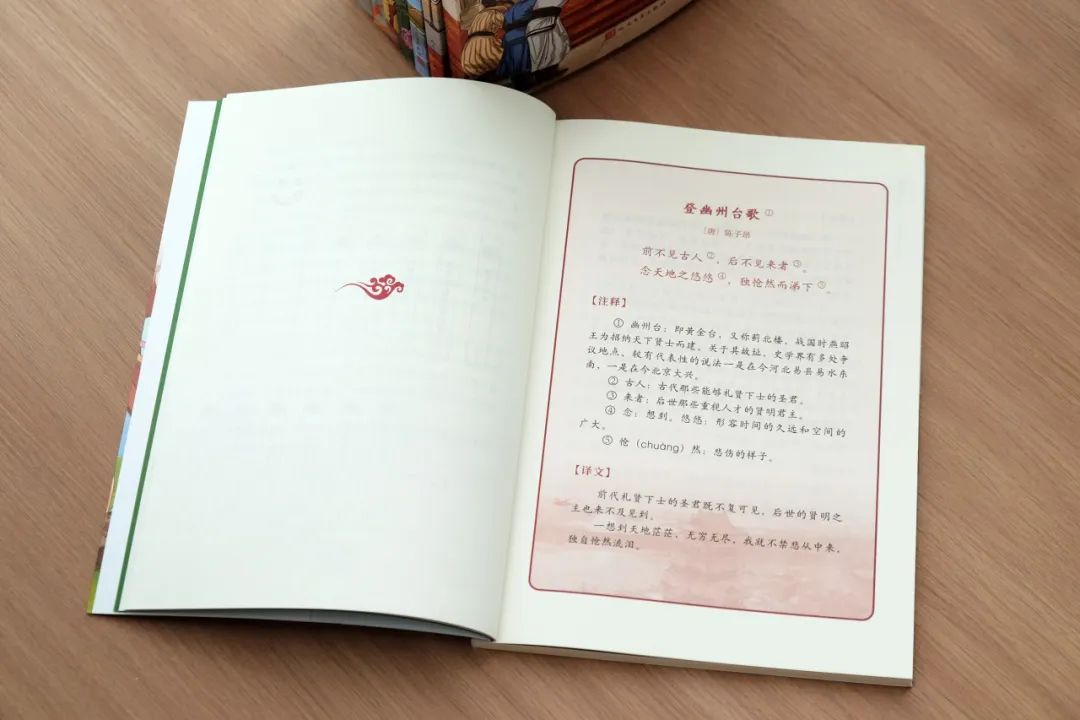 登幽州台歌①
〔唐〕陈子昂
前不见古人②，后不见来者③。
念天地之悠悠④，独怆然而涕下⑤。
【注释】
① 幽州台：即黄金台，又称蓟北楼，战国时燕昭
王为招纳天下贤士而建。关于其故址，史学界有多处争
议地点，较有代表性的说法一是在今河北易县易水东
南，一是在今北京大兴。
② 古人：古代那些能够礼贤下士的圣君。
③ 来者：后世那些重视人才的贤明君主。
④ 念：想到。悠悠：形容时间的久远和空间的
广大。
⑤ 怆（chuàng）然：悲伤的样子。
【译文】
前代礼贤下士的圣君既不复可见，后世的贤明之
主也来不及见到。
一想到天地茫茫，无穷无尽，我就不禁悲从中来，
独自怆然流泪。